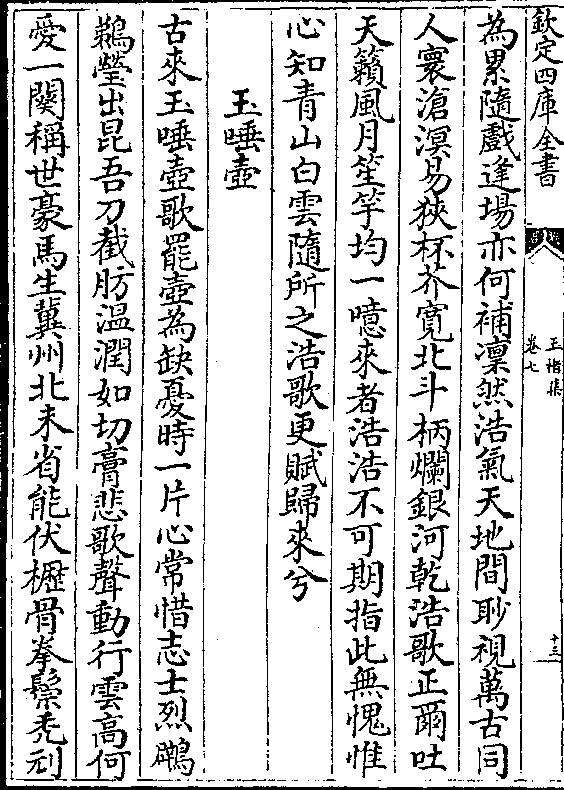 欽定四庫全書
玉楮集
卷七
十三
為累隨戲逢場亦何補凜然浩氣天地間眇視萬古同
人寰滄溟易狹杯芥寬北斗柄爛銀河乾浩歌正爾吐
天籟風月笙竽均一噫來者浩浩不可期指此無愧惟
心知青山白雲隨所之浩歌更賦歸來兮
玉唾壺
古來玉唾壺歌罷壺為缺憂時一片心常惜志士烈鸊
鵜瑩出昆吾刀截肪温潤如切膏悲歌聲動行雲高何
愛一闋稱世豪馬生冀州北未省能伏櫪骨拳鬃禿刓